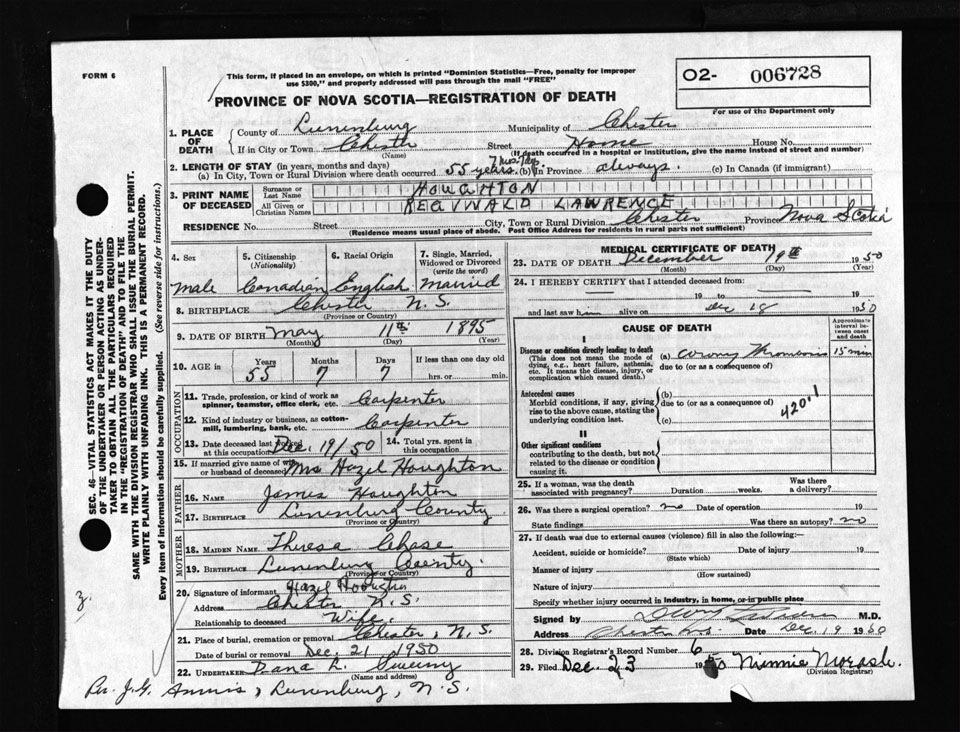 FORM 6
This form, if placed in an envelope, on which is printed "Dominion Statistics—Free, penalty for improper
use $300," and properly addressed will pass through the mail "FREE"
O2- 006728
For use of the Department only
PROVINCE OF NOVA SCOTIA—REGISTRATION OF DEATH
1. PLACE OF DEATH
County of Lunenburg Municipality of Chester
If in City or Town Chester Street Home House No.
(Name) (If death occurred in a hospital or institution, give the name instead of street and number)
2. LENGTH OF STAY (in years, months and days)
(a) In City, Town or Rural Division where death occurred 55 years. 7 mos. 7 dys. (b) In Province always. (c) In Canada (if immigrant)
3. PRINT NAME OF DECEASED
Surname or Last Name HOUGHTON
All Given or Christian Names REGINALD LAWRENCE
RESIDENCE No. Street City, Town or Rural Division Chester Province Nova Scotia
(Residence means usual place of abode. Post Office Address for residents in rural parts not sufficient)
4. Sex
male
5. Citizenship
(Nationality)
Canadian
6. Racial Origin
English
7. Single, Married,
Widowed or Divorced
(write the word)
married
8. BIRTHPLACE Chester N.S.
(Province or Country)
9. DATE OF BIRTH May 11th 1895
(Month) (Day) (Year)
10. AGE in
Years Months Days If less than one day old
55 7 7 hrs. or min.
OCCUPATION
11. Trade, profession, or kind of work as
spinner, teamster, office clerk, etc. Carpenter
12. Kind of industry or business, as cotton-
mill, lumbering, bank, etc. Carpenter
13. Date deceased last worked
at this occupation Dec. 19/50
14. Total yrs. spent in
this occupation
15. If married give name of wife
or husband of deceased Mrs Hazel Houghton
FATHER
16. NAME James Houghton
17. BIRTHPLACE Lunenburg County
(Province or Country)
MOTHER
18. MAIDEN NAME Theresa Chase
19. BIRTHPLACE Lunenburg County.
(Province or Country)
20. Signature of informant Hazel Houghton
Address Chester N.S.
Relationship to deceased Wife.
21. Place of burial, cremation or removal Chester, N.S.
Date of burial or removal Dec. 21 1950
22. UNDERTAKER Dana L. Sweeny
(Name and address)
Per. J.G. , Lunenburg, N.S.
MEDICAL CERTIFICATE OF DEATH
23. DATE OF DEATH December 19th 1950
(Month) (Day) (Year)
24. I HEREBY CERTIFY that I attended deceased from
19 to 19
and last saw him alive on Dec 18 1950
CAUSE OF DEATH
Approximate
interval be-
tween onset
and death
I
Disease or condition directly leading to death
(This does not mean the mode of
dying, e.g., heart failure, asthenia,
etc. It means the disease, injury, or
complication which caused death.)
(a) Coronary Thrombosis 15 min
due to (or as a consequence of)
Antecedent causes
Morbid conditions, if any, giving
rise to the above cause, stating the
underlying condition last.
(b)
due to (or as a consequence of)
(c)
420.1
II
Other significant conditions
contributing to the death, but not
related to the disease or condition
causing it.
25. If a woman, was the death
associated with pregnancy? Duration weeks. Was there
a delivery?
26. Was there a surgical operation? no Date of operation 19
State findings Was there an autopsy? no
27. If death was due to external causes (violence) fill in also the following:—
Accident, suicide or homicide? Date of injury 19
(State which)
Manner of injury
(How sustained)
Nature of injury
Specify whether injury occurred in industry, in home, or in public place
Signed by M.D.
Address Chester N.S. Date Dec. 19 1950
28. Division Registrar's Record Number 6
29. Filed Dec. 23 1950 Minnie Morash.
(Division Registrar)
SEC. 46—VITAL STATISTICS ACT MAKES IT THE DUTY
OF THE UNDERTAKER OR PERSON ACTING AS UNDER-
TAKER TO OBTAIN ALL THE PARTICULARS REQUIRED
IN THE "REGISTRATION OF DEATH" AND TO FILE THE
SAME WITH THE DIVISION REGISTRAR WHO SHALL ISSUE THE BURIAL PERMIT.
WRITE PLAINLY WITH UNFADING INK. THIS IS A PERMANENT RECORD.
Every item of information should be carefully supplied. (See reverse side for instructions.)